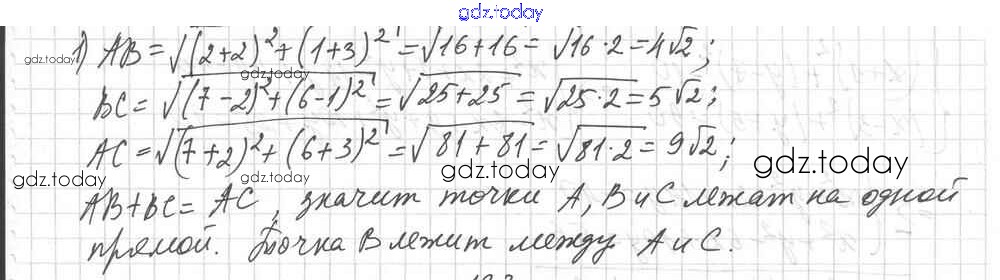 gdz.today
1) AB = √(2+2)² + (1+3)² = √16+16 = √16·2 = 4√2;
gdz.today
gdz.today
BC = √(7-2)² + (6-1)² = √25+25 = √25·2 = 5√2;
AC = √(7+2)² + (6+3)² = √81+81 = √81·2 = 9√2;
gdz.today gdz.today gdz.today gdz.today
AB+BC = AC, значит точки A, B и C лежат на одной
прямой. Точка B лежит между A и C.